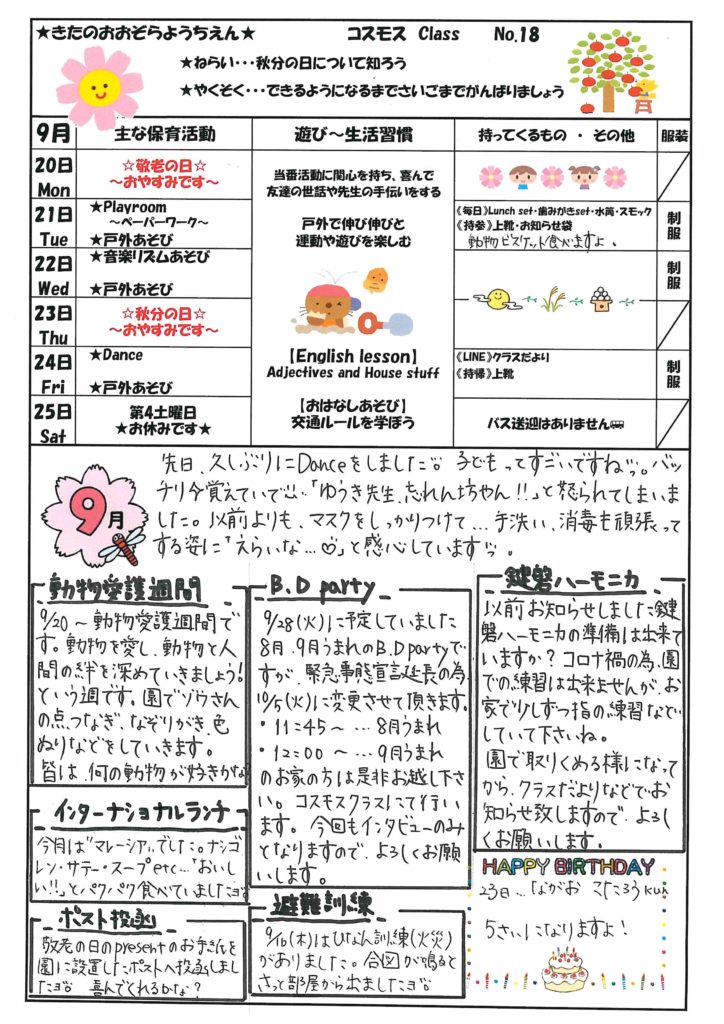 ★きたのおおぞらようちえん★ コスモス Class No.18
★ねらい・・・秋分の日について知ろう
★やくそく・・・できるようになるまでさいごまでがんばりましょう
9月 主な保育活動 遊び～生活習慣 持ってくるもの ・ その他 服装
20日 Mon
☆敬老の日☆
～おやすみです～
21日 Tue
★Playroom
～ペーパーワーク～
★戸外あそび
22日 Wed
★音楽リズムあそび
★戸外あそび
23日 Thu
☆秋分の日☆
～おやすみです～
24日 Fri
★Dance
★戸外あそび
25日 Sat
第4土曜日
★お休みです★
当番活動に関心を持ち、喜んで
友達の世話や先生の手伝いをする
戸外で伸び伸びと
運動や遊びを楽しむ
【English lesson】
Adjectives and House stuff
【おはなしあそび】
交通ルールを学ぼう
《毎日》Lunch set・歯みがきset・水筒・スモック
《持参》上靴・お知らせ袋
動物ビスケット食べますよ、
制服
制服
《LINE》クラスだより
《持帰》上靴
制服
バス送迎はありません
9月
先日、久しぶりにDanceをしました 子どもってすごいですね。バッ
チリ今覚えていて「ゆうき先生、忘れん坊やん!!」と怒られてしまいま
した。以前よりも、マスクをしっかりつけて…手洗い、消毒も頑張って
する姿に「えらいな…♡」と感心しています。
動物愛護週間
9/20～動物愛護週間で
す。動物を愛し、動物と人
間の絆を深めていきましょう!
という週です。園でゾウさん
の点つなぎ、なぞりがき、色
ぬりなどをしていきます。
皆は、何の動物が好きかな
インターナショナルランチ
今月は"マレーシア"でした。ナシゴ
レン・サテー・スープetc…「おいし
い!!」とパクパク食べていました
ポスト投函
敬老の日のpresentのお手紙を
園に設置したポストへ投函しまし
た 喜んでくれるかな?
B.D party
9/28(火)に予定していました
8月、9月うまれのB.D partyで
すが、緊急事態宣言延長の為、
10/5(火)に変更させて頂きます。
・11:45～…8月うまれ
・12:00～…9月うまれ
のお家の方は是非お越し下さ
い。コスモスクラスにて行い
ます。今回もインタビューのみ
となりますので、よろしくお願
いします。
避難訓練
9/16(木)はひなん訓練(火災)
がありました。合図が鳴ると
さっと部屋から出ました
鍵盤ハーモニカ
以前お知らせしました鍵
盤ハーモニカの準備は出来て
いますか?コロナ禍の為、園
での練習は出来ませんが、お
家で少しずつ指の練習などし
ていて下さいね。
園で取りくめる様になって
から、クラスだよりなどでお
知らせ致しますので、よろし
くお願いします。
HAPPY BIRTHDAY
23日…ながお こたろうkun
5さいになりますよ!